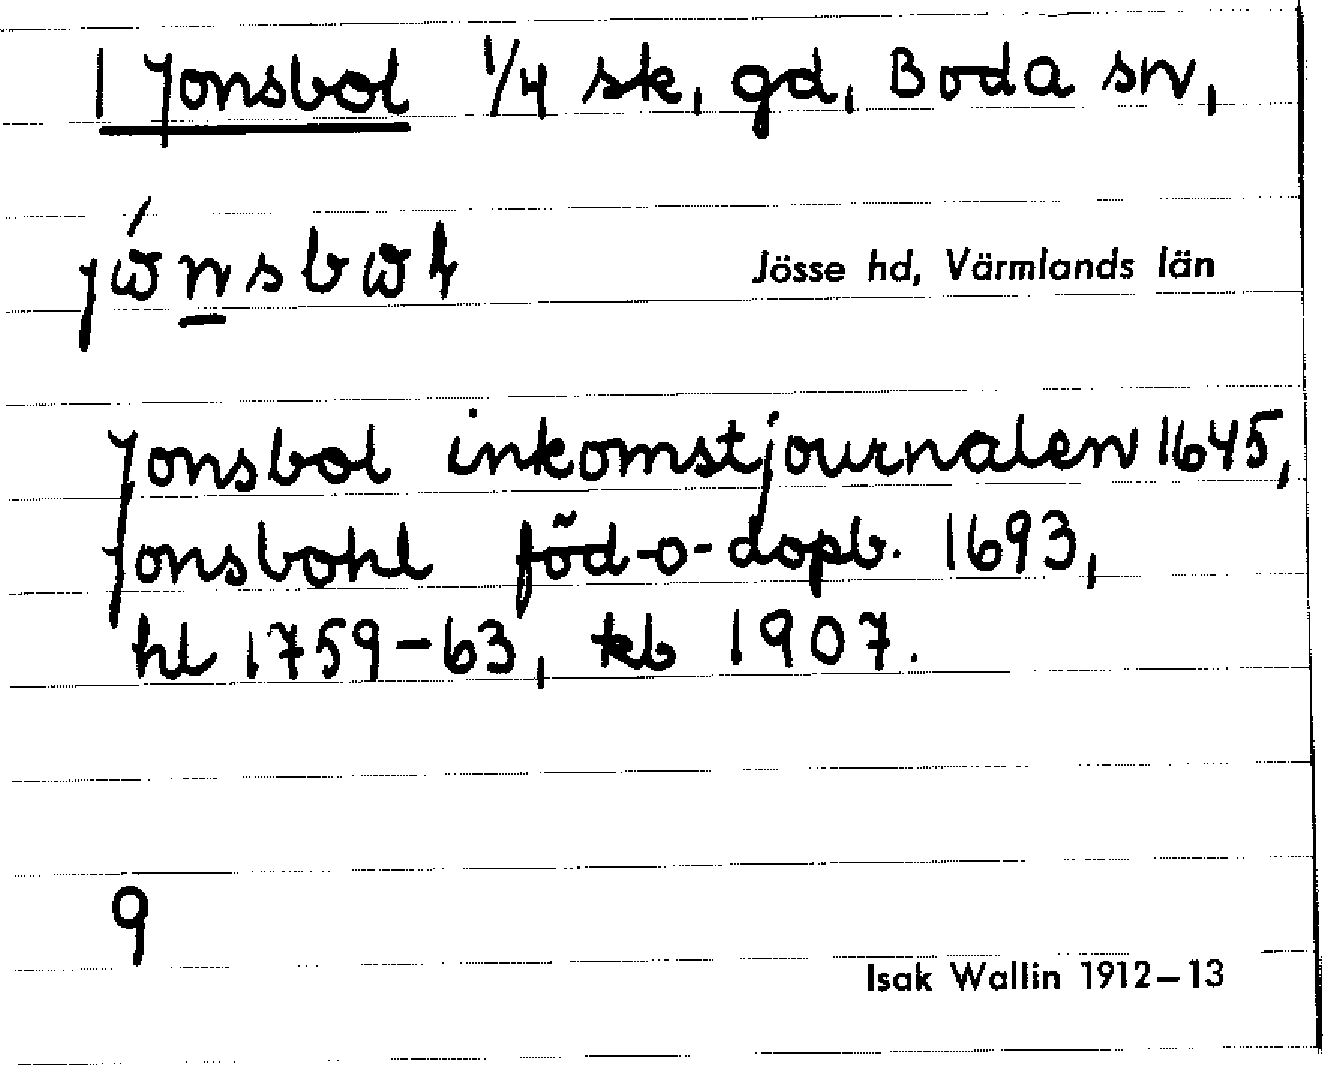 1 Jonsbol 1/4 sk, gd, Boda sn,
Jösse hd, Värmlands län
Jonsbol inkomstjournalen 1645,
Jonsbohl föd-o-dopb. 1693,
hl 1759-63, kb 1907.
9
Isak Wallin 1912–13